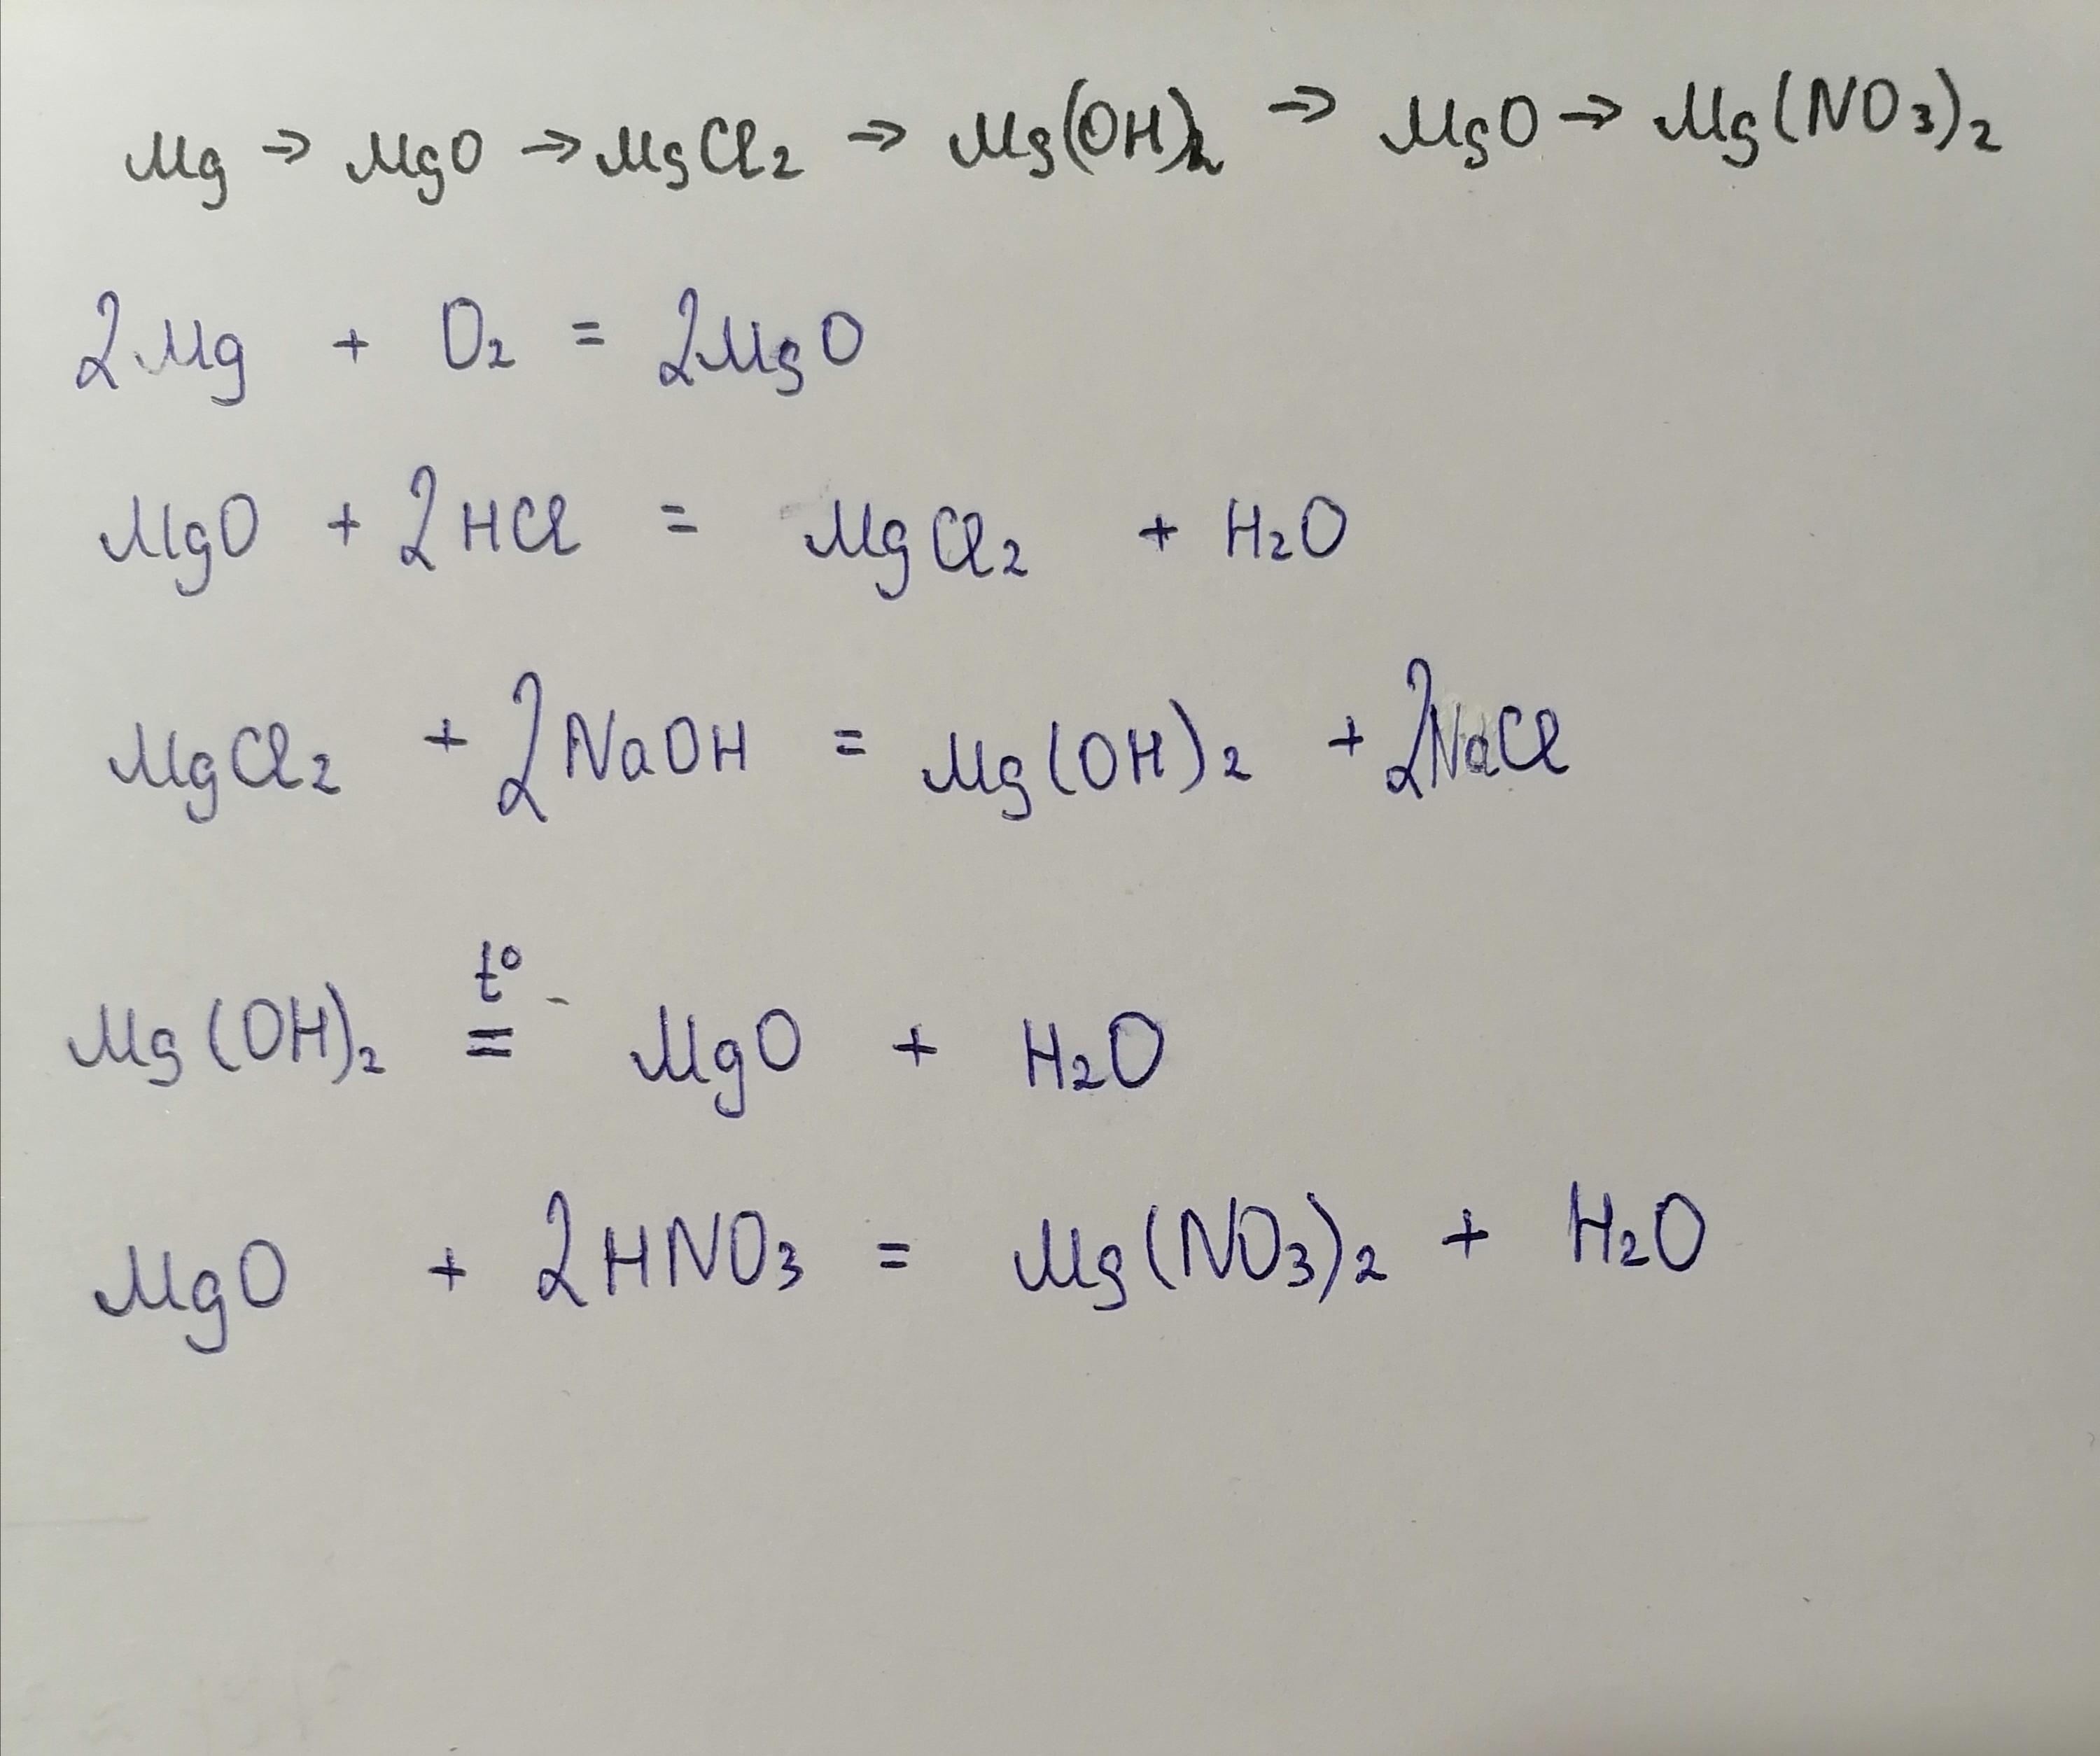 Mg → MgO → MgCl₂ → Mg(OH)₂ → MgO → Mg(NO₃)₂
2Mg + O₂ = 2MgO
MgO + 2HCl = MgCl₂ + H₂O
MgCl₂ + 2NaOH = Mg(OH)₂ + 2NaCl
t°
Mg(OH)₂ = MgO + H₂O
MgO + 2HNO₃ = Mg(NO₃)₂ + H₂O